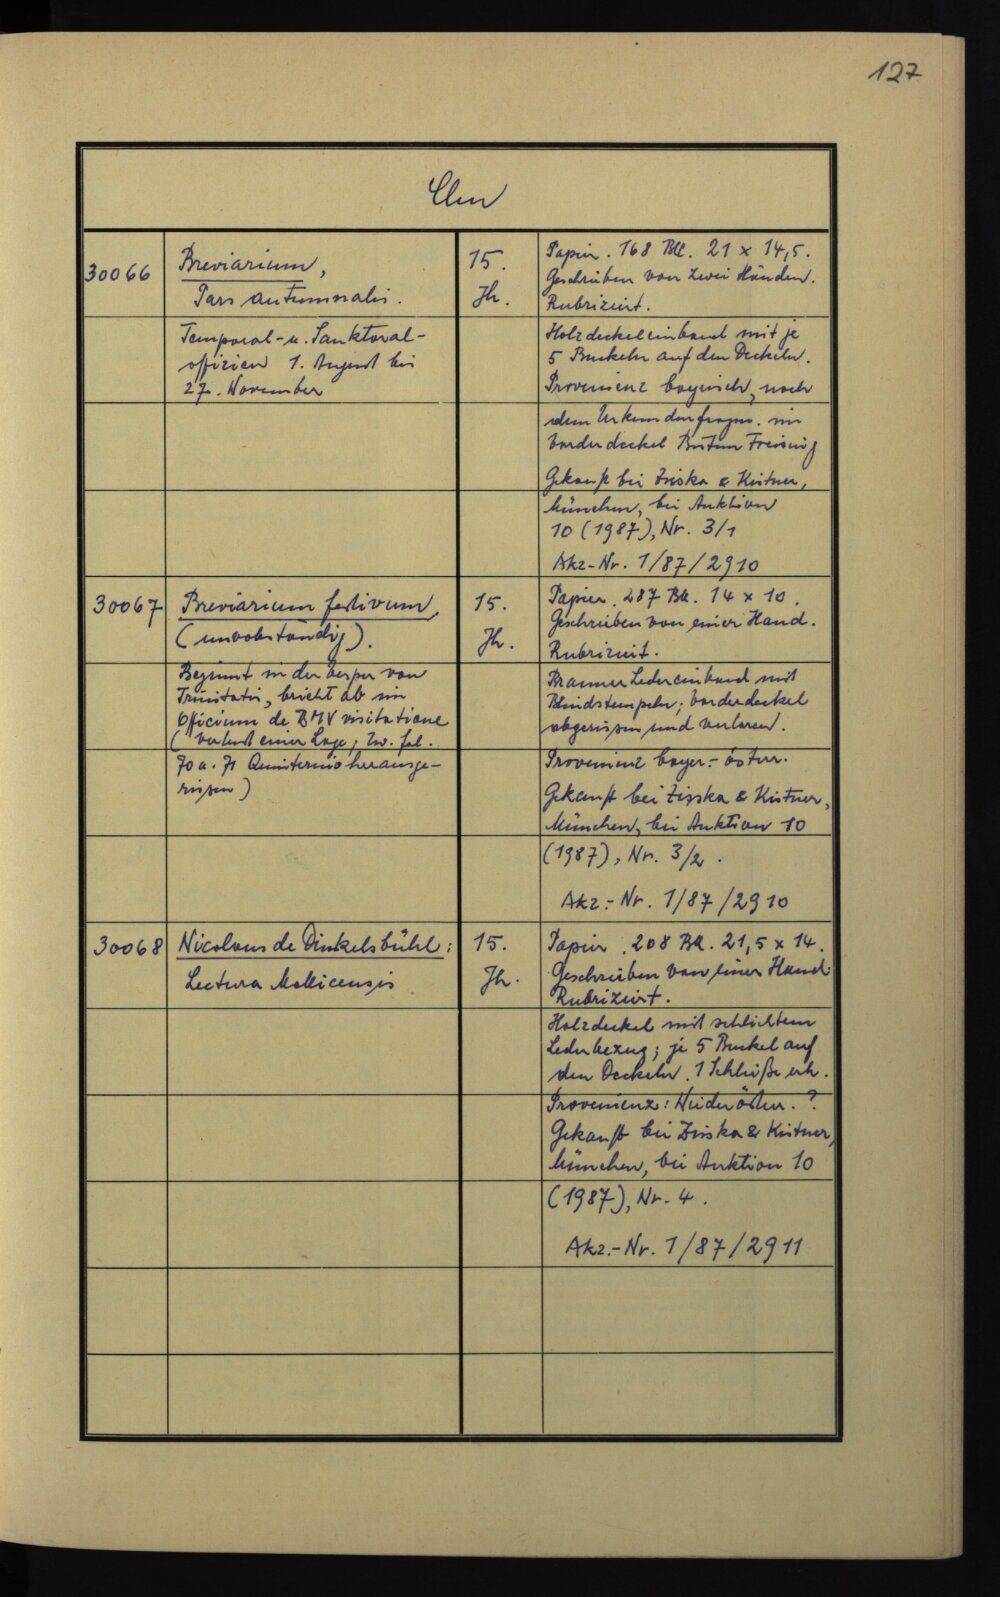 127
Clm
30066
Breviarium,
Pars autumnalis.
Temporal- u. Sanktoral-
offizien 1. August bis
27. November
15.
Jh.
Papier. 168 Bll. 21 x 14,5.
Geschrieben von zwei Händen.
Rubriziert.
Holzdeckeleinband mit je
5 Buckeln auf den Deckeln.
Provenienz bayrisch, nach
dem Urkundenfragm. im
Vorderdeckel Bistum Freising
Gekauft bei Zisska & Kistner,
München, bei Auktion
10 (1987), Nr. 3/1
Akz-Nr. 1/87/2910
30067
Breviarium festivum,
(unvollständig).
Beginnt in der Vesper von
Trinitatis, bricht ab im
Officium de BMV visitatione
(Verlust einer Lage; zw. fol.
70 u. 71 Quinternio herausge-
rissen)
15.
Jh.
Papier. 287 Bll. 14 x 10.
Geschrieben von einer Hand.
Rubriziert.
Brauner Ledereinband mit
Blindstempeln; Vorderdeckel
abgerissen und verloren.
Provenienz bayer.-österr.
Gekauft bei Zisska & Kistner,
München, bei Auktion 10
(1987), Nr. 3/2.
Akz.-Nr. 1/87/2910
30068
Nicolaus de Dinkelsbühl:
Lectura Mellicensis
15.
Jh.
Papier. 208 Bll. 21,5 x 14.
Geschrieben von einer Hand
Rubriziert.
Holzdeckel mit schlichtem
Lederbezug; je 5 Buckel auf
den Deckeln. 1 Schließe erh.
Provenienz: Niederösterr. ?
Gekauft bei Zisska & Kistner,
München, bei Auktion 10
(1987), Nr. 4.
Akz.-Nr. 1/87/2911